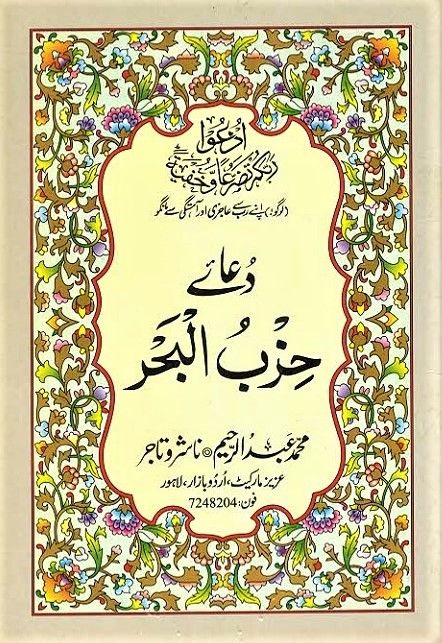 اُدْعُوْا
رَبَّكُمْ تَضَرُّعًا وَّخُفْيَةً
(لوگو:) اپنے رب سے عاجزی اور آہستگی سے مانگو
دُعائے
حِزْبُ الْبَحَر
محمد عبد الرحیم ناشر و تاجر
عزیز مارکیٹ، اُردو بازار، لاہور
فون: 7248204